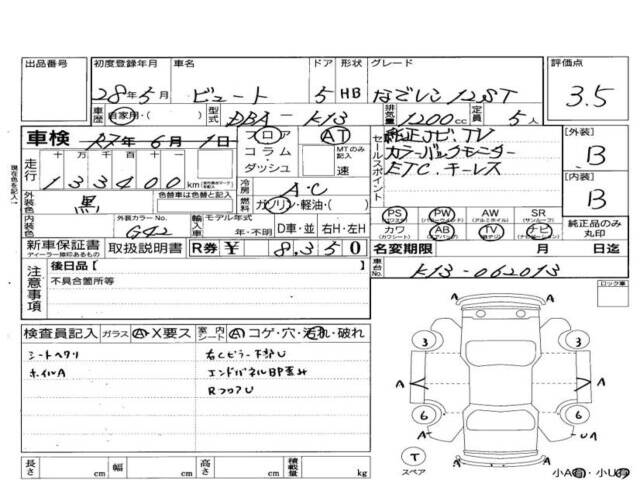 出品番号 初度登録年月 車名 ドア 形状 グレード 評価点
28年5月 ビュート 5 HB なごレン 12ST 3.5
車歴 自家用・( ) 型式 DBA-K13 排気量 1200cc 定員 5人
車検 R7年 6月 1日 フロア AT セールスポイント 純正ナビ.TV [外装]
コラム・ MTのみ記入 カラーバックモニター B
ダッシュ 速 ETC.キーレス
走行 十万千百十 133400km [内装]
現在色を記入→ 冷房 A・C B
外装色 黒 色替車は色替と記入 燃料 ガソリン・軽油・( )
PS PW AW SR
(パワステ) (パワーウインド) (アルミホイル) (サンルーフ)
内装色 外装カラーNo. G42 輸入車 モデル年式 年・不明 D車・並 右H・左H カワ AB TV ナビ 純正品のみ丸印
(カワシート) (エアバッグ)
新車保証書 取扱説明書 R券 ¥ 8,350 名変期限 月 日迄
ディーラー捺印あるもの
注意事項 後日品 [ ] 車台No. K13-062013
不具合箇所等 ロック車
検査員記入 ガラス A・X要ス 室内シート A コゲ・穴・汚れ・破れ
シートヘタリ 右Cピラー下部U
ホイルA エンドパネルBP歪み
RフロアU
A A
3 3
A A
6 6
A UA
T
スペア
長さ cm 幅 cm 高さ cm 積載量 kg 小A・小U